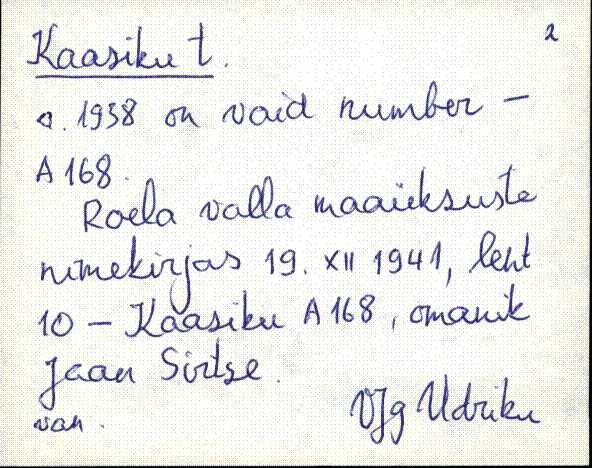 2
Kaasiku t.
a. 1938 on vaid number –
A 168.
Roela valla maaüksuste
nimekirjas 19. XII 1941, leht
10 – Kaasiku A 168, omanik
Jaan Sirtse.
van. VJg Udriku